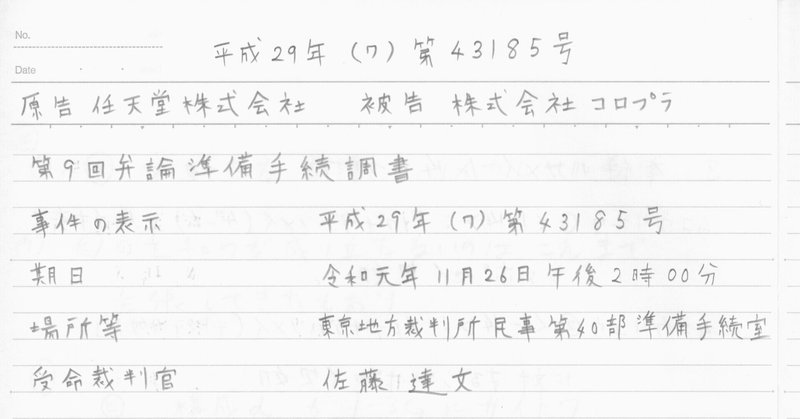 No.
平成29年(ワ)第43185号
Date
原告 任天堂株式会社 被告 株式会社コロプラ
第9回弁論準備手続調書
事件の表示 平成29年(ワ)第43185号
期日 令和元年11月26日午後2時00分
場所等 東京地方裁判所民事第40部準備手続室
受命裁判官 佐藤達文